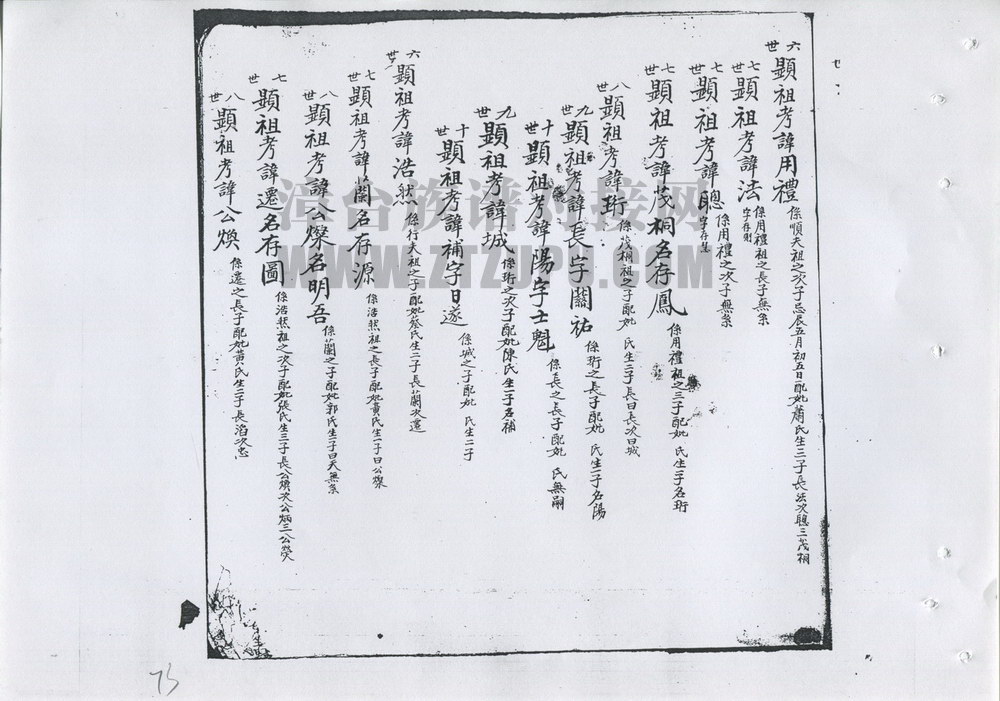 六世 顯祖考諱用禮 係順夫祖之次子忌辰五月初五日配妣蕭氏生三子長法次聰三茂桐
七世 顯祖考諱法 字存則 係用禮祖之長子無系
七世 顯祖考諱聰 字存 係用禮之次子無系
七世 顯祖考諱茂桐名存鳳 係用禮祖之三子配妣 氏生一子名珩
八世 顯祖考諱珩 係茂桐祖之子配妣 氏生二子長曰長次曰城
九世 顯祖考諱長字關祐 係珩之長子配妣 氏生一子名陽
十世 顯祖考諱陽字士魁 係長之長子配妣 氏無嗣
九世 顯祖考諱城 係珩之次子配妣陳氏生一子名補
十世 顯祖考諱補字日遂 係城之子配妣 氏生二子
六世 顯祖考諱浩然 係行夫祖之子配妣蔡氏生二子長蘭次遷
七世 顯祖考諱蘭名存源 係浩然祖之長子配妣黃氏生一子曰公燦
八世 顯祖考諱公燦名明吾 係蘭之子配妣郭氏生一子曰天無系
七世 顯祖考諱遷名存圖 係浩然祖之次子配妣張氏生三子長公煥次公炳三公熒
八世 顯祖考諱公煥 係遷之長子配妣黃氏生二子長滔次忠
漳台族谱对接网
WWW.ZTZUPU.COM
73